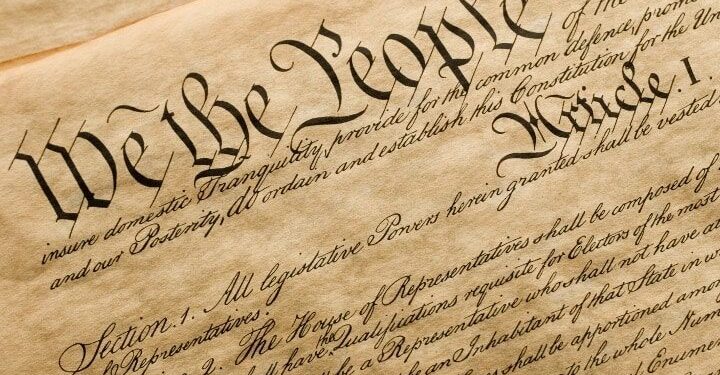 We the People of the
insure domestic Tranquility, provide for the common defence, promo
and our Posterity, do ordain and establish this Constitution for the Un
Article. I.
Section. 1. All legislative Powers herein granted shall be vested
of Representatives.
2. The House of Representatives shall be composed of
the
have Qualifications requisite for Electors of the most
be a Representative who shall not have at
be an Inhabitant of that State in w
shall be apportioned amon
to the whole Num
Enumer